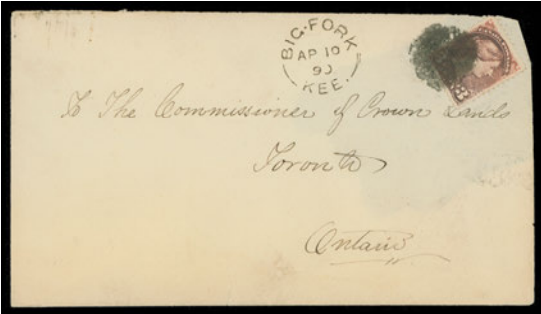 BIG-FORK
AP 10
90
KEE.
To The Commissioner of Crown Lands
Toronto
Ontario